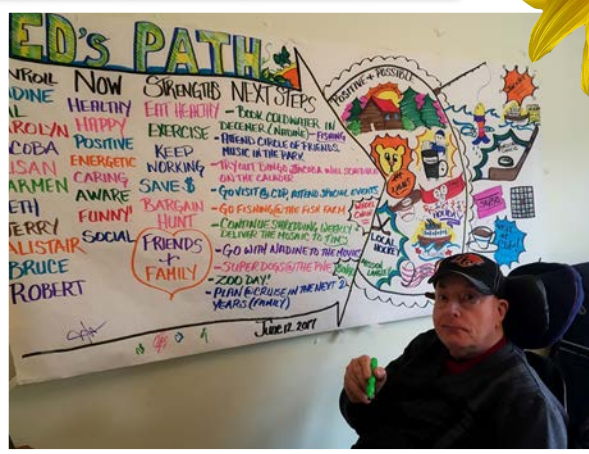 ED's PATH
NROLL
ADINE
AL
AROLYN
ACOBA
USAN
ARMEN
ETH
TERRY
ALISTAIR
BRUCE
ROBERT
NOW
HEALTHY
HAPPY
POSITIVE
ENERGETIC
CARING
AWARE
FUNNY
SOCIAL
STRENGTHS
EAT HEALTHY
EXERCISE
KEEP
WORKING
SAVE $
BARGAIN
HUNT
FRIENDS
+
FAMILY
NEXT STEPS
- BOOK COLDWATER IN
DECEMBER (NADINE) - FISHING
- ATTEND CIRCLE OF FRIENDS
MUSIC IN THE PARK
- TRY OUT BINGO JACOBA WILL
ON THE CALENDAR
- GO VISIT @ CDP, ATTEND SPECIAL EVENTS
- GO FISHING @ THE FISH FARM
- CONTINUE SHREDDING WEEKLY &
DELIVER THE MOSAIC TO TIM'S
- GO WITH NADINE TO THE MOVIES
- SUPERDOGS @ THE PNE
- ZOO DAY!
- PLAN @ CRUISE IN THE NEXT 2
YEARS (FAMILY)
June 12, 2017
POSITIVE + POSSIBLE
LOCAL
HOCKEY